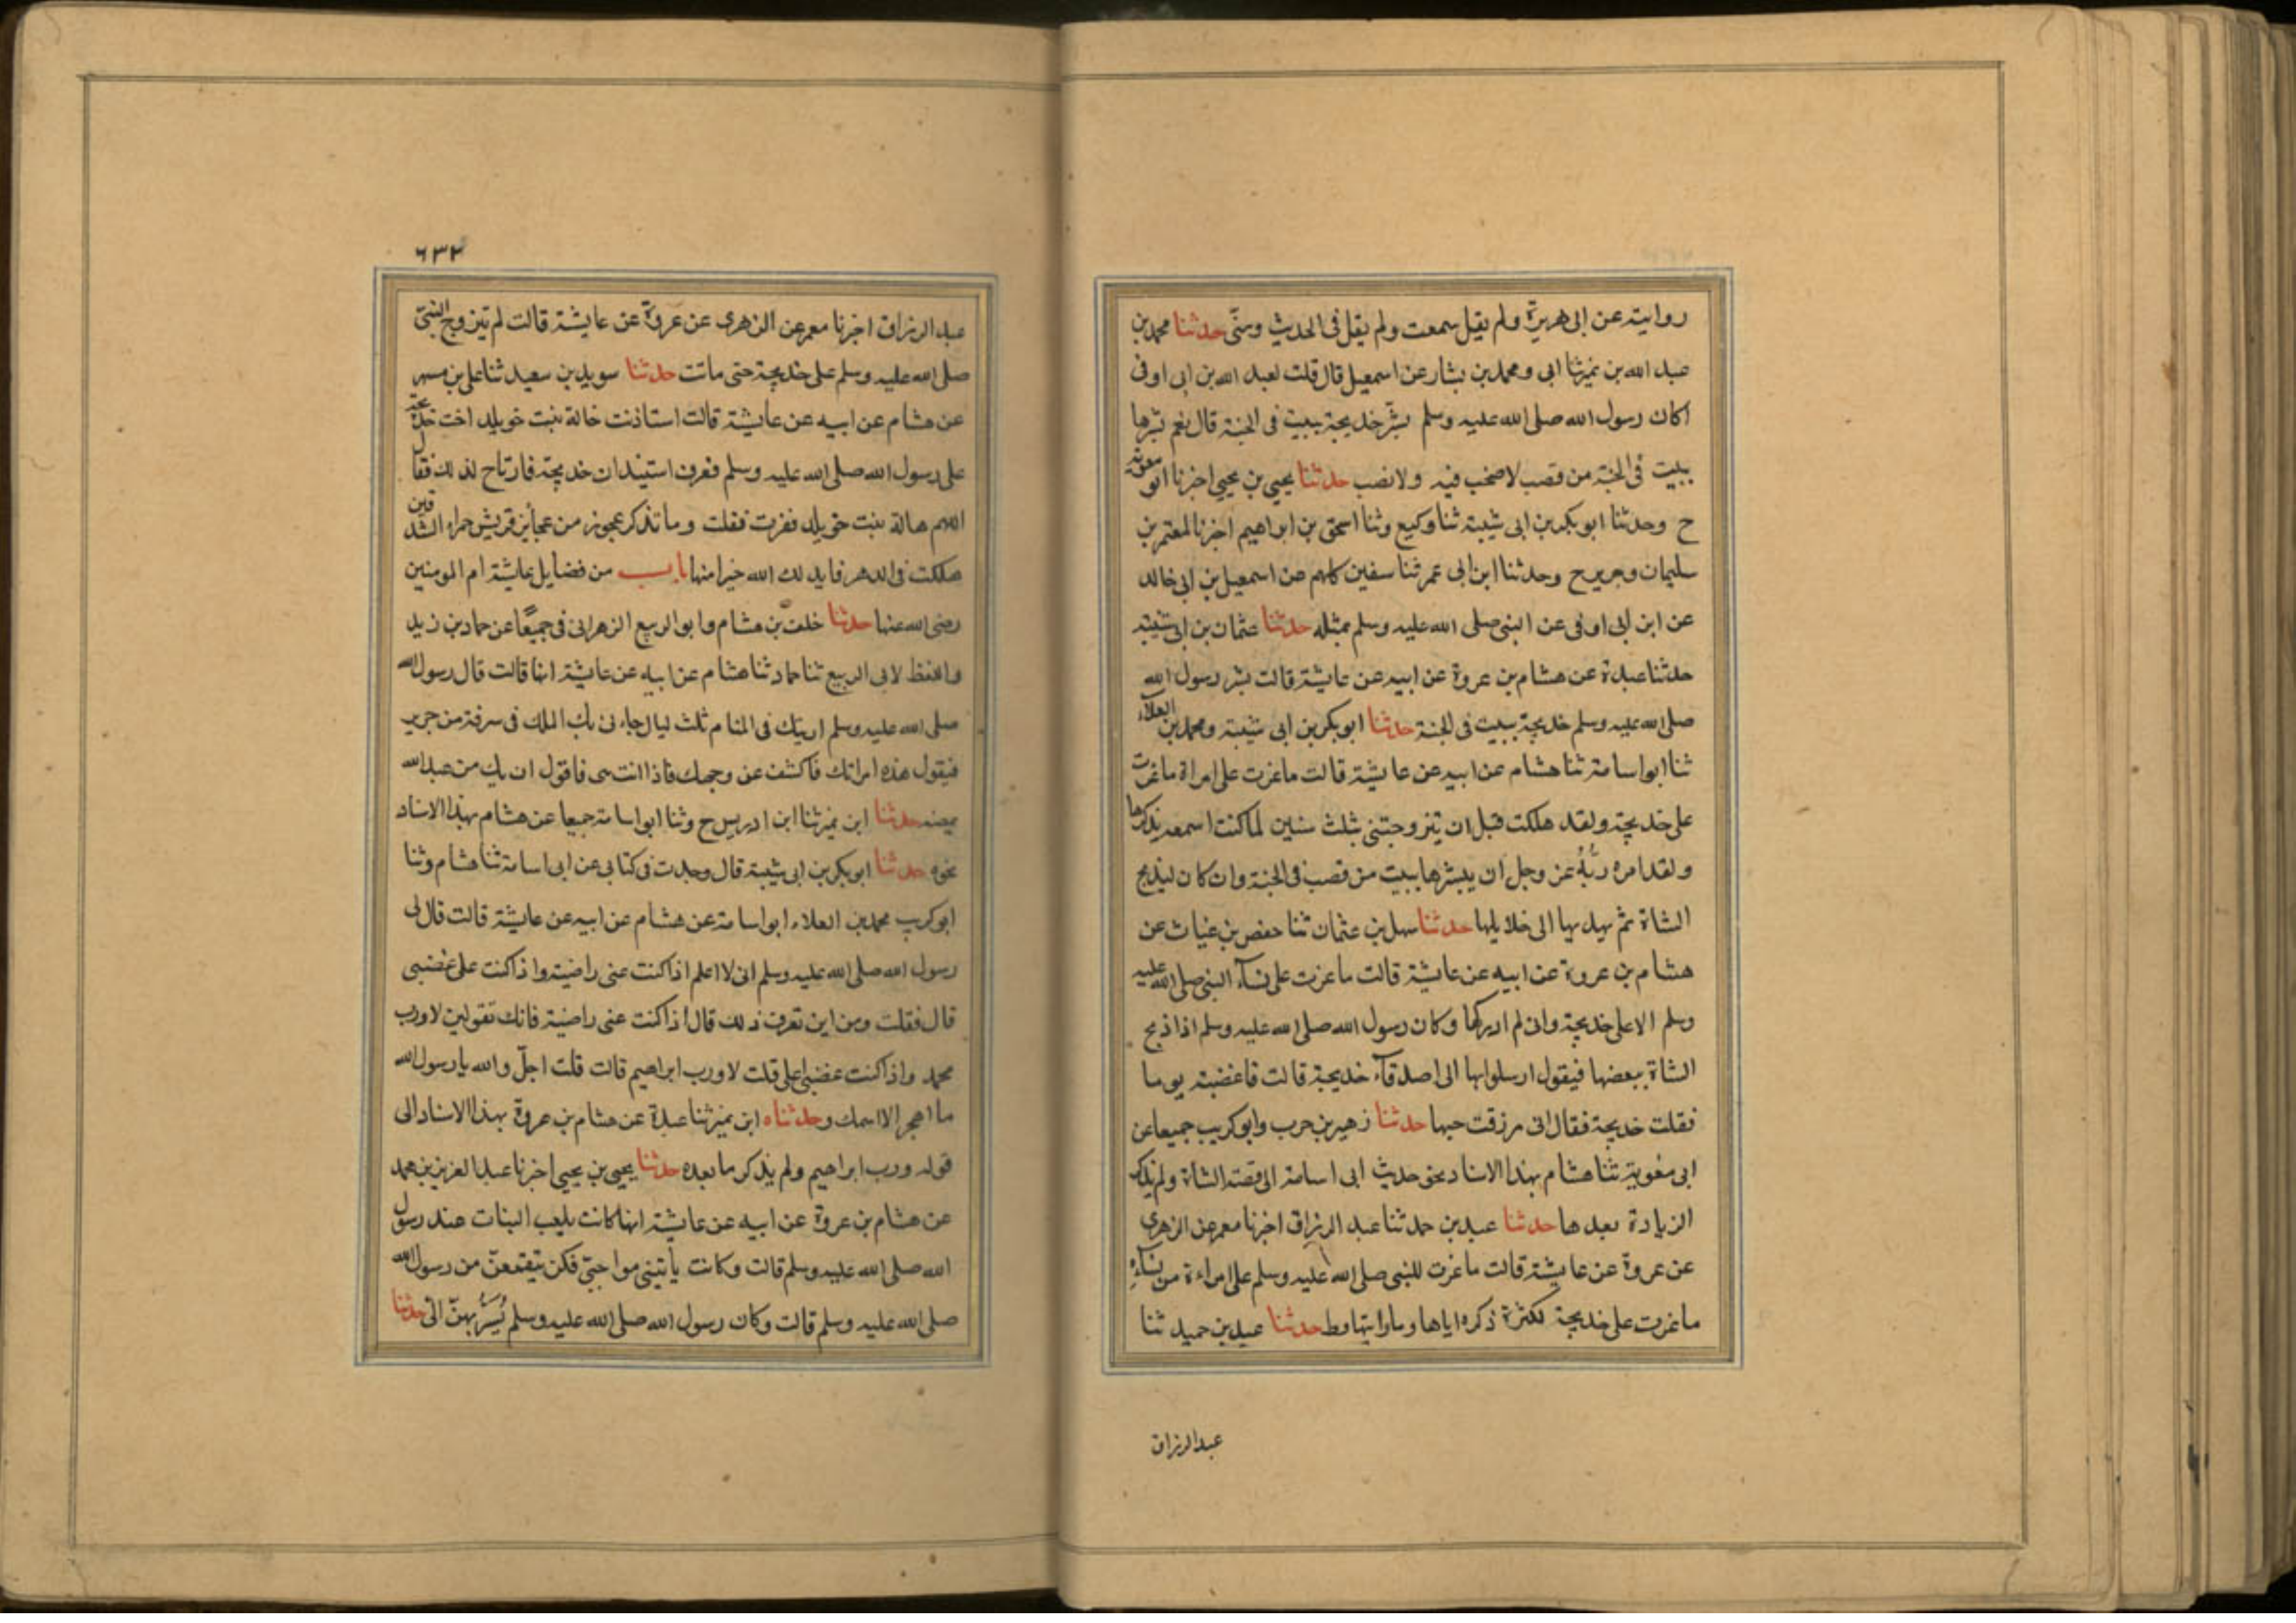 روايته عن ابى هريرة ولم يقل سمعت ولم يقل فى الحديث ومنّى حدثنا محمد بن
عبد الله بن نمير ثنا ابى ومحمد بن بشار عن اسمعيل قال قلت لعبد الله بن ابى اوفى
اكان رسول الله صلى الله عليه وسلم بشّر خديجة ببيت فى الجنة قال نعم بشرها
ببيت فى الجنة من قصب لا صخب فيه ولا نصب حدثنا يحيى بن يحيى اخبرنا ابو معوية
ح وحدثنا ابو بكر بن ابى شيبة ثنا وكيع وثنا اسحق بن ابراهيم اخبرنا لمعتمر بن
سليمان وجرير ح وحدثنا ابن ابى عمر ثنا سفين كلهم عن اسمعيل بن ابى خالد
عن ابن ابى اوفى عن النبى صلى الله عليه وسلم بمثله حدثنا عثمان بن ابى شيبة
حدثنا عبدة عن هشام بن عروة عن ابيه عن عايشة قالت بشر رسول الله
صلى الله عليه وسلم خديجة ببيت فى الجنة حدثنا ابو بكر بن ابى شيبة ومحمد بن العلاء
ثنا ابو اسامة ثنا هشام عن ابيه عن عايشة قالت ماغرت على امراة ماغرت
على خديجة ولقد هلكت قبل ان تيزوجتنى بثلث سنين لما كنت اسمعه يذكرها
ولقد امره ربّهُ عز وجل ان يبشرها ببيت من قصب فى الجنة وان كان ليذبح
الشاة ثم يهديها الى خلايلها حدثنا سهل بن عثمان ثنا حفص بن غياث عن
هشام بن عروة عن ابيه عن عايشة قالت ماغرت على نسآء النبى صلى الله عليه
وسلم الا على خديجة وانى لم ادركها وكان رسول الله صلى الله عليه وسلم اذا ذبح
الشاة ببعضها فيقول ارسلوا بها الى اصدقآء خديجة قالت فاغضبته يوما
فقلت خديجة فقال انى رزقت حبها حدثنا زهير بن حرب وابو كريب جميعا عن
ابى معوية ثنا هشام بهذا الاسناد نحو حديث ابى اسامة الى قصة الشاة ولم يذكر
الزيادة بعدها حدثنا عبد بن حمد ثنا عبد الرزاق اخبرنا معمر عن الزهرى
عن عروة عن عايشة قالت ماغرت للنبى صلى الله عليه وسلم على امراءة من نسآءِ
ماغرت على خديجة لكثرة ذكره اياها وما رايتها قط حدثنا عبد بن حميد ثنا
عبد الرزاق
٦٣٢
عبد الرزاق اخبرنا معمر عن الزهرى عن عروة عن عايشة قالت لم تيزوج النبىّ
صلى الله عليه وسلم على خديجة حتى ماتت حدثنا سويد بن سعيد ثنا على بن مسهر
عن هشام عن ابيه عن عايشة قالت استاذنت خالة بنت خويلد اخت خديجة
على رسول الله صلى الله عليه وسلم فعرف استيذان خديجة فارتاح لذلك فقال
اللهم هالة بنت خويلد فغرت فقلت وما تذكر عجوز من عجائز قريش حمراء الشدقين
هلكت فى الدهر فابدلك الله خيرا منها باب من فضايل عايشة ام المومنين
رضى الله عنها حدثنا خلف بن هشام وابو الربيع الزهرانى فى جميعًا عن حماد بن زيد
واللفظ لابى الربيع ثنا حماد ثنا هشام عن ابيه عن عايشة انها قالت قال رسول الله
صلى الله عليه وسلم اريتك فى المنام ثلث ليال جاءنى بك الملك فى سرقة من حرير
فيقول هذه امراتك فاكشف عن وجهك فاذا انت هى فاقول ان يك من عبد الله
يمضه حدثنا ابن نمير ثنا ابن ادريس ح وثنا ابو اسامة جميعا عن هشام بهذا الاسناد
نحوه حدثنا ابو بكر بن ابى شيبة قال وجدت فى كتابى عن ابى اسامة ثنا هشام وثنا
ابو كريب محمد بن العلاء ابو اسامة عن هشام عن ابيه عن عايشة قالت قال لى
رسول الله صلى الله عليه وسلم انى لا اعلم اذا كنت عنى راضية واذا كنت على غضبى
قال فقلت ومن اين تعرف ذلك قال اذا كنت عنى راضية فانك تقولين لا ورب
محمد واذا كنت غضبى على قلت لا ورب ابراهيم قالت قلت اجلّ والله يا رسول الله
ما اهجر الا اسمك وحدثناه ابن نمير ثنا عبدة عن هشام بن عروة بهذا الاسناد الى
قوله ورب ابراهيم ولم يذكر ما بعده حدثنا يحيى بن يحيى اخبرنا عبد العزيز بن محمد
عن هشام بن عروة عن ابيه عن عايشة انها كانت يلعب البنات عند رسول
الله صلى الله عليه وسلم قالت وكانت يأتينى مواحبتى فكن يتقمعن من رسول الله
صلى الله عليه وسلم قالت وكان رسول الله صلى الله عليه وسلم يُسَرِّبهنّ الىّ حدثنا